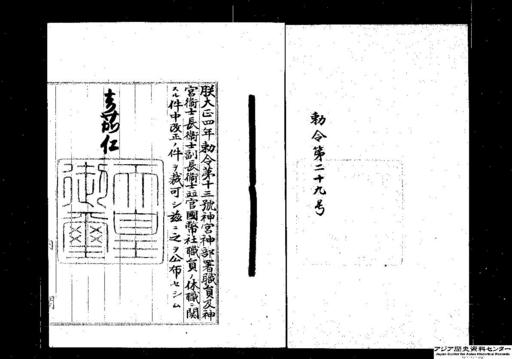 勅令第二十九号
朕大正四年勅令第十三號神宮神部署職員及神
宮衞士長衞士副長衞士竝官國幣社職員ノ休職ニ關
スル件中改正ノ件ヲ裁可シ茲ニ之ヲ公布セシム
嘉仁
天皇
御璽
アジア歴史資料センター
Japan Center for Asian Historical Records